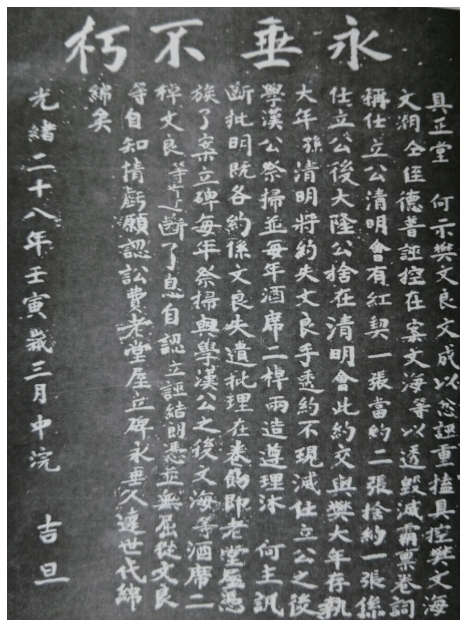 永垂不朽
具正堂 何示樊文良文成以忿誣重搕具控樊文海
文湖仝侄德普誣控在案文海等以透毀滅霸稟卷詞
稱仕立公清明會有紅契一張當約二張捨約一張係
仕立公後大隆公捨在清明會此約交與樊大年存執
大年 孫清明將約失文良手透約不現滅仕立公之後
學漢公祭掃並每年酒席二棹兩造遵理沐 何主訊
斷批明既各約係文良失遺批理在卷飭即老堂屋憑
族了案立碑每年祭掃與學漢公之後文海等酒席二
棹文良等世世斷了息自認立誣結則憑並無屈從文良
等自知情虧願認訟費老堂屋立碑永垂久遠世代綿
綿矣
光緒二十八年壬寅歲三月中浣 吉旦